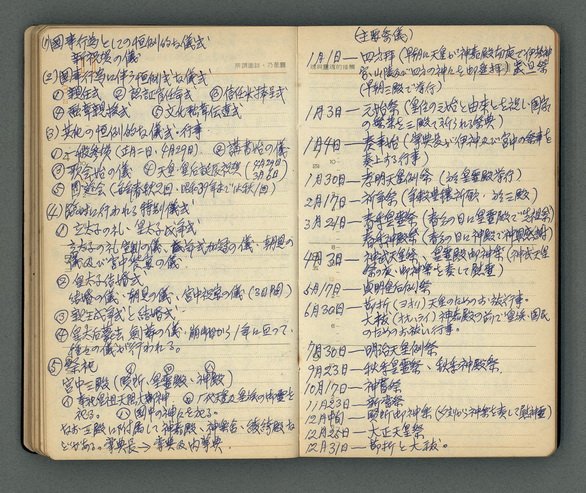 (1)国事行為としての恒例的な儀式
新祝賀の儀
(2)国事行為に伴う恒例的な儀式
①親任式 ②認証官任命式 ③信任状捧呈式
④勲章親授式 ⑤文化勲章伝達式
(3)其他の恒例的な儀式・行事
①一般参賀(正月二日、4月29日) ②講書始の儀
③歌会始の儀 ④天皇・皇后誕辰祝賀(4月29日 3月6日)
⑤園遊会(毎年春秋2回・昭和39年までは秋1回)
(4)臨時に行われる特別儀式
①立太子の礼・皇太子成年式
立太子の礼宣制の儀・成年式加冠の儀・朝見の
儀及び宮中饗宴の儀
②皇太子結婚式
結婚の儀、朝見の儀、宮中祝宴の儀(3日間)
③親王成年式と結婚式
④皇太后崩去 の儀 崩御日から1年に亘って、
種々の儀が行われる。
⑤祭祀
宮中三殿(賢所、皇霊殿、神殿)
皇祖天照大御神 歴代天皇皇族の御霊を
祀る。国中の神々を祀る。
なお三殿に附属して神嘉殿、神楽舎、綾綺殿な
どがある。掌典長→掌典及内掌典
所謂進錶、乃是醫
(主要祭儀)
1月1日—四方拝(早朝に天皇が神嘉殿南庭で伊勢神
宮、山陵及び四方の神々を御遥拝)歳旦祭
(早朝三殿で行う)
1月3日—元始祭(皇位の元始と由来とを祝い国家
の繁栄を三殿で祈られる祭典)
1月4日—奏事始(掌典長が伊勢及び宮中の祭事を
奏上する行事)
1月30日—孝明天皇例祭(於皇霊殿等行)
2月17日—祈年祭(年穀豊穣祈願・於三殿)
3月21日—春季皇霊祭(春分の日に皇霊殿で先祖祭)
春季神殿祭(春分の日に神殿で神恩感謝)
4月3日—神武天皇祭、皇霊殿御神楽(神武天皇
祭の夜、御神楽を奏して慰霊)
6月17日—貞明皇后例祭
6月30日—節折(ヨオリ)天皇のためのお祓行事。
大祓(オハライ)神嘉殿の前で皇族・国民
のためのお祓い行事。
7月30日—明治天皇例祭
9月23日—秋季皇霊祭、秋季神殿祭
10月17日—神嘗祭
11月23日—新嘗祭
12月中旬—賢所御神楽(夕刻から神楽を奏して慰神霊)
12月25日—大正天皇祭
12月31日—節折と大祓。